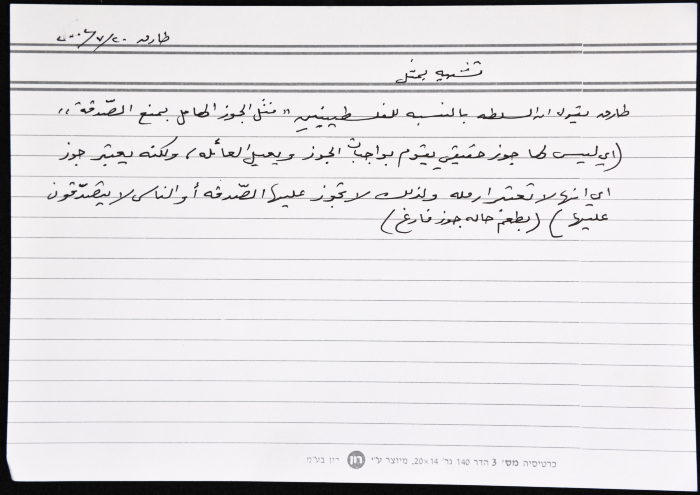 طارق ٢٠/٧/٢٠٠٦
تشبيه بمثل
طارق بقول ان السلطه بالنسبه للفلسطينيين "مثل الجوز الهامل بمنع الصّدقة"
(اي ليس لها جوز حقيقي يقوم بواجبات الجوز ويعيل العائله، ولكنه يعتبر جوز
اي انها لا تعتبر ارمله ولذلك لا تجوز عليها الصّدقه أو الناس لا يتصّدقون
عليها) (بطعم حاله جوز فارغ)
כרטיסיה מס' 3 הדר 140 גר' 14×20, מיוצר ע"י רון רון בע"מ